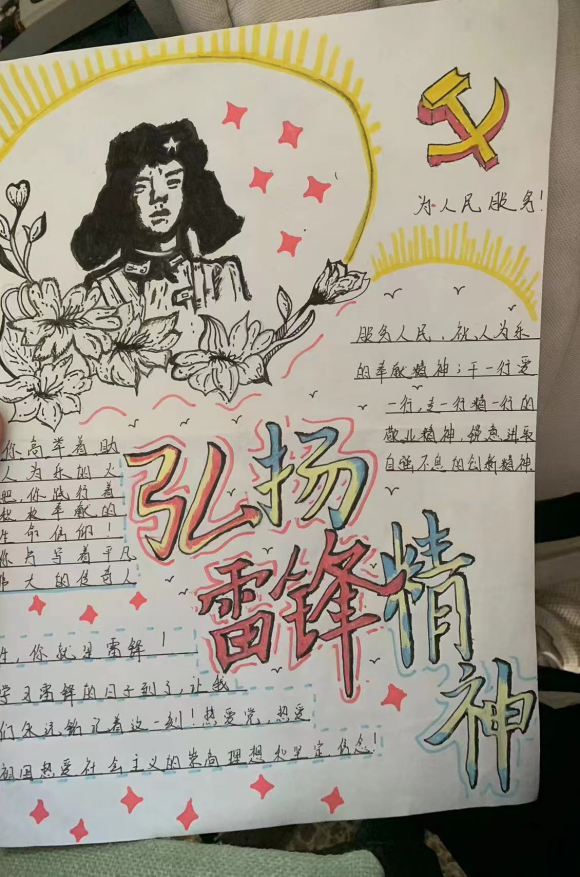 为人民服务!
服务人民、助人为乐
的奉献精神;干一行爱
一行,专一行精一行的
敬业精神,锐意进取
自强不息的创新精神
弘扬
雷锋精神
你高举着助
人为乐的火
把,你践行着
奉献的
生命信仰!
你书写着平凡
伟大的传奇人
生,你就是雷锋!
学习雷锋的日子到了,让我
们永远铭记着这一刻!热爱党,热爱
祖国热爱社会主义的崇高理想和坚定信念!